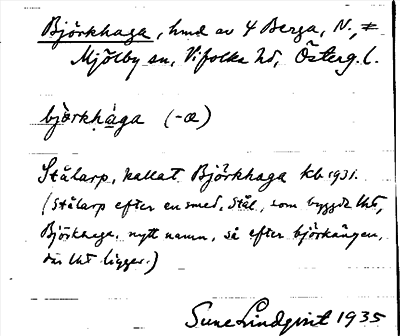 Björkhaga, hmd av 4 Berga, N., ≠
Mjölby sn, Vifolka hd, Österg. l.
björkhàga (-æ)
Stålarp, kallat Björkhaga kb 1931.
(Stålarp efter en smed, Stål, som byggde lht,
Björkhaga, nytt namn, så efter björkängen,
där lht ligger.)
Sune Lindqvist 1935